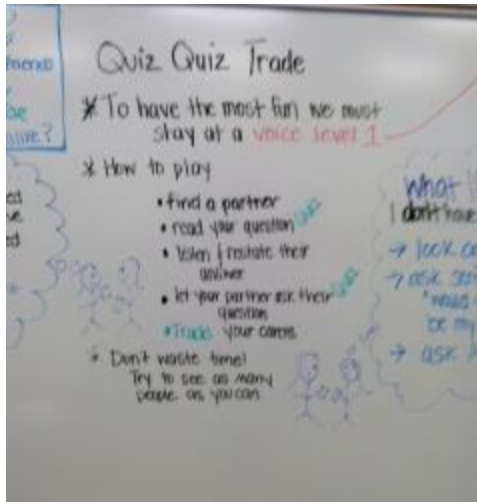 Quiz Quiz Trade
* To have the most fun we must
stay at a voice level 1
* How to play
• find a partner
• read your question Quiz
• listen & restate their
answer
• let your partner ask their Quiz
question
• Trade your cards
* Don't waste time!
Try to see as many
people as you can.
friends
be
What
I don't have
→ look
→ ask
be my
→ ask